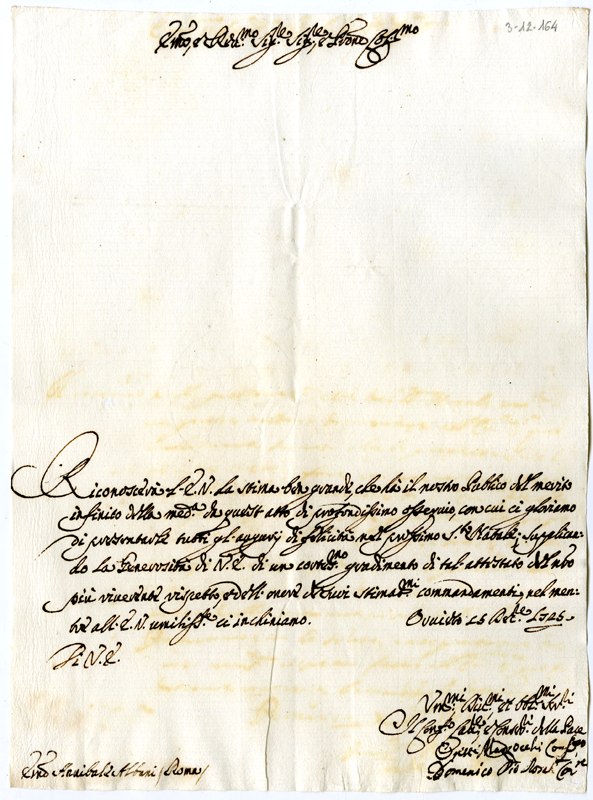 3-12-164
Emo, e Rmo Sigre Sigre, e Prone Colmo
Riconoscerà l'E.V. la stima ben grande, che hà il nostro Publico del merito
infinito della medma da quest'atto di profondissimo ossequio, con cui ci gloriamo
di presentarle tutti gl'augurj di felicità nel prossimo Sto Natale; Supplican-
do la Generosità di V.E. di un cortmo gradimento di tal attestato del nro
più riverente rispetto, e dell'onore de suoi stimatmi commandamenti, nel men-
tre all'E.V. umilisste ci inchiniamo. Orvieto 15 Xbre 1725
Di V.E.
Umi Divmi et Obmi Servi
della Pace
Domenico
Emo Annibale Albani (Roma)